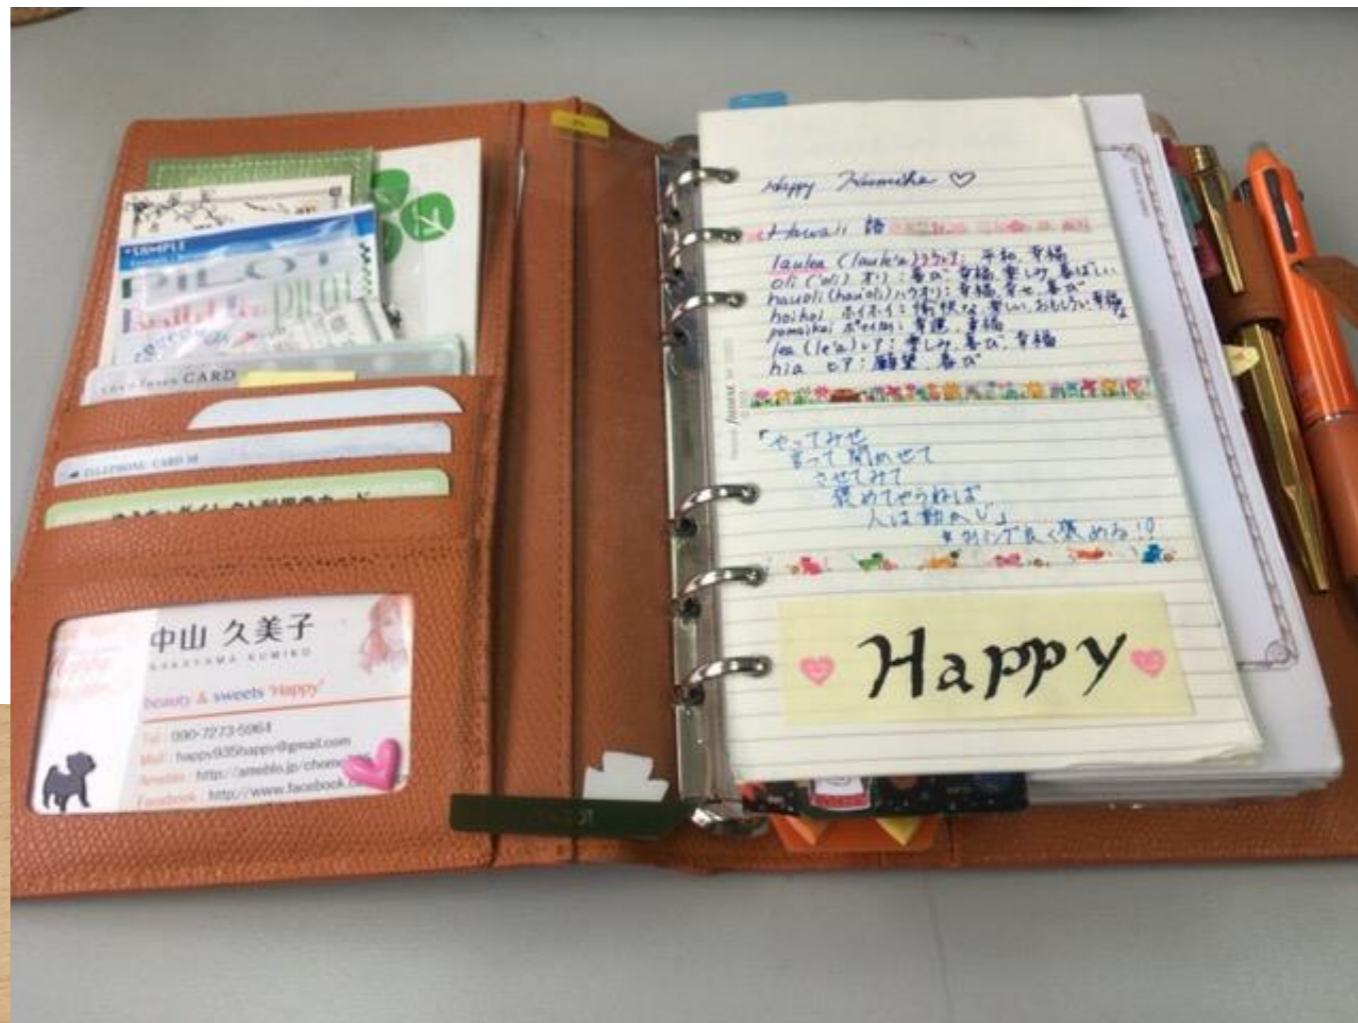 *SAMPLE
PILOT
CARD
TELEPHONE CARD 50
中山 久美子
NAKAYAMA KUMIKO
beauty & sweets "Happy"
Tel : 090-7273-5964
Mail : happy935happy@gmail.com
Ameblo : http://ameblo.jp/chome
Facebook : http://www.facebook.c
Happy Kumiko ♡
Hawaii 語
laulea (laule'a) ラウレア: 平和、幸福
oli ('oli) オリ : 喜び 幸福 楽しみ 喜ばしい
hauoli (hau'oli) ハウオリ : 幸福 幸せ、喜び
hoihoi ホイホイ : 愉快な 楽しい、おもしろい、幸福な
pomaikai ポマイカイ : 幸運、幸福
lea (le'a) レア : 楽しみ、喜び、幸福
hia ヒア : 願望、喜び
「やってみせ
言って聞かせて
させてみて
褒めてやらねば
人は動かじ」
タイミング良く褒める!!
Happy